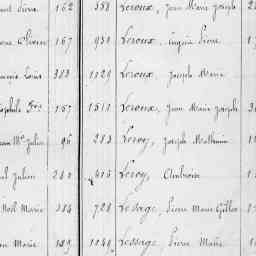 Pierre 162 558 Leroux, Jean Marie Joseph
Olivier 167 930 Leroux, Pierre
Louis 383 1129 Leroux, Joseph Marie
157 1513 Leroux, Jean Marie Joseph
Julien 96 283 Leroy, Joseph Mathurin
Julien 240 415 Leroy, Ambroise
Noël Marie 384 728 Lesage, Pierre Marie Gilles
Marie 189 1240 Lessage, Pierre Marie